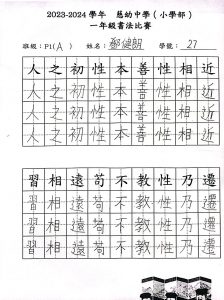 2023-2024 學年 慈幼中學(小學部)
一年級書法比賽
班級:P1(A) 姓名:鄭健朗 學號:27
人之初性本善性相近
人之初性本善性相近
人之初性本善性相近
人之初性本善性相近
習相遠苟不教性乃遷
習相遠苟不教性乃遷
習相遠苟不教性乃遷
習相遠苟不教性乃遷